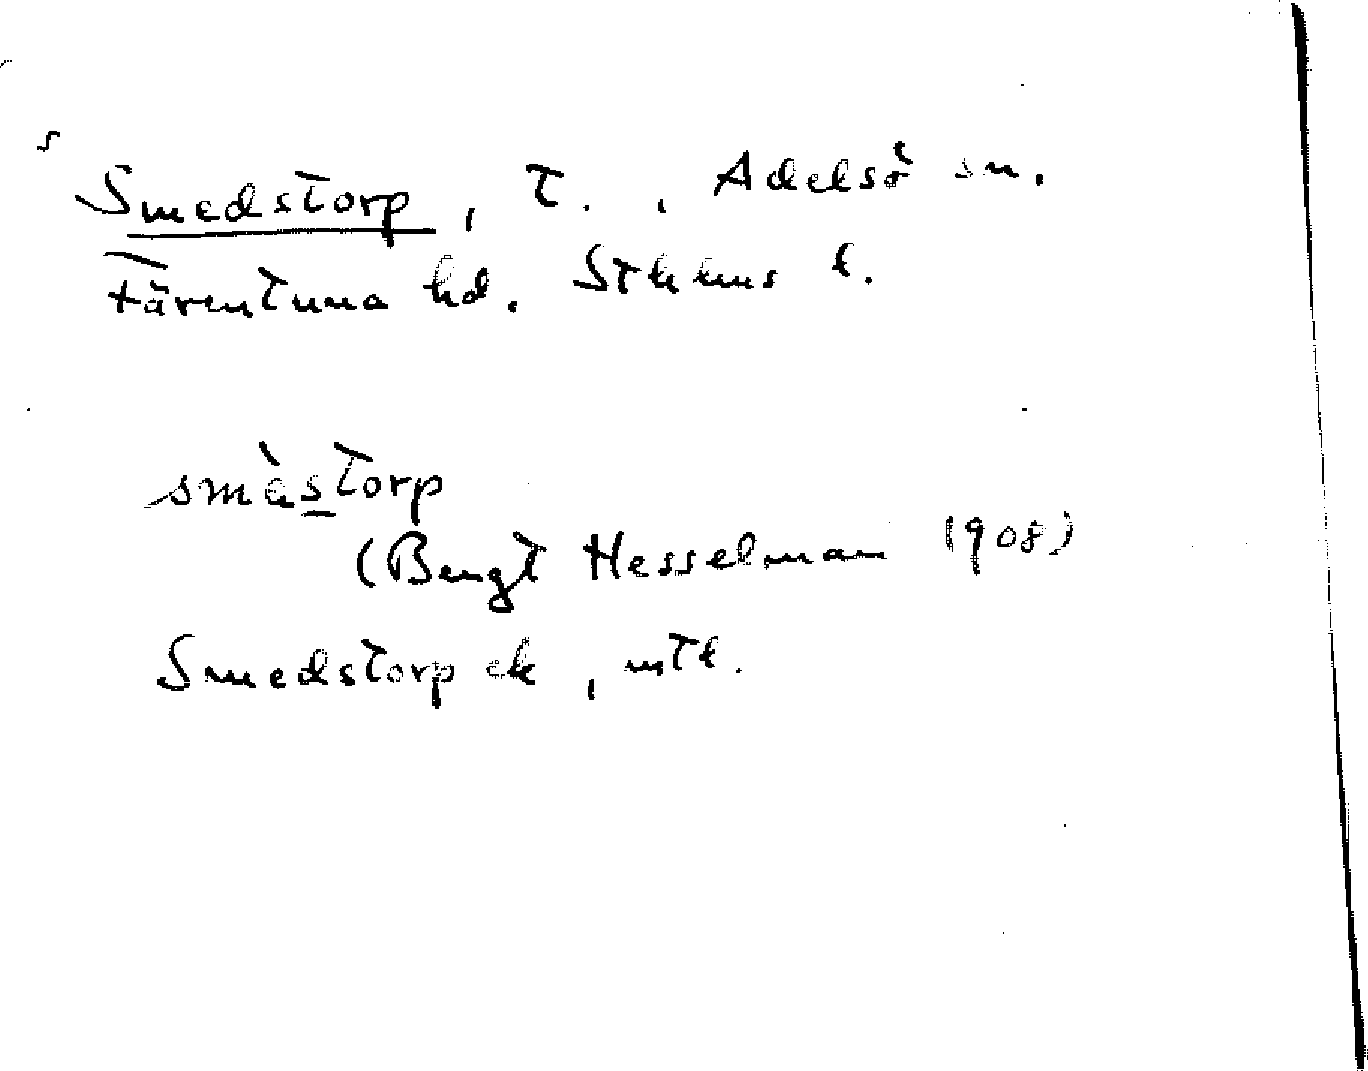 Smedstorp, t., Adelsö sn.
Färentuna hd. Sthlms l.
småstorp
(Bengt Hesselman 1908)
Smedstorp ek, mtl.